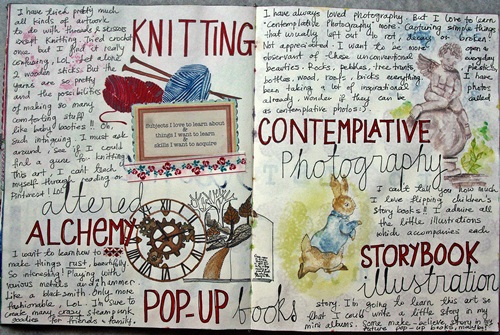 I have tried pretty much
all kinds of artwork
to do with threads & scissors
except Knitting. Tried crochet
once but I find it really
confusing, LOL. Let alone
2 wooden sticks. But the
yarns are so pretty
and the possibilities
of making so many
comforting stuff
like baby booties!! Oh,
such intriguing. I must ask
around & see if I could
find a guru for knitting.
This art, I can't teach
myself through reading or
Pinterest LOL!
KNITTING
Subjects I love to learn about
&
things I want to learn
&
skills I want to acquire
altered
ALCHEMY
I want to learn how to
make things rust, beautifully
So interesting! Playing with
various metals and hammer
Like a black-smith only, more
fashionable, Lol. I'm sure to
create many crazy steampunk
goodies for friends & family.
POP-UP books
I have always loved photography. But I love to learn
"Contemplative Photography" more. Capturing simple things
that usually left out to rot, decay or broke!
Not appreciated. I want to be more
observant of these unconventional
beauties. Rocks, pebbles, tree trunks
bottles, wood, roofs, bricks everything.
been taking a lot of inspirational
already, wonder if they can be
as contemplative photos!
open a
everyday
photos I
have
photo
called
CONTEMPLATIVE
Photography
I can't tell you how much
I love flipping children's
story books!! I admire all
the little illustrations
which accompanies each
STORYBOOK
illustration
story. I'm going to learn this art so
that I could write a little story in my
mini albums. Some make-believe story in my
picture pop-up books maybe.